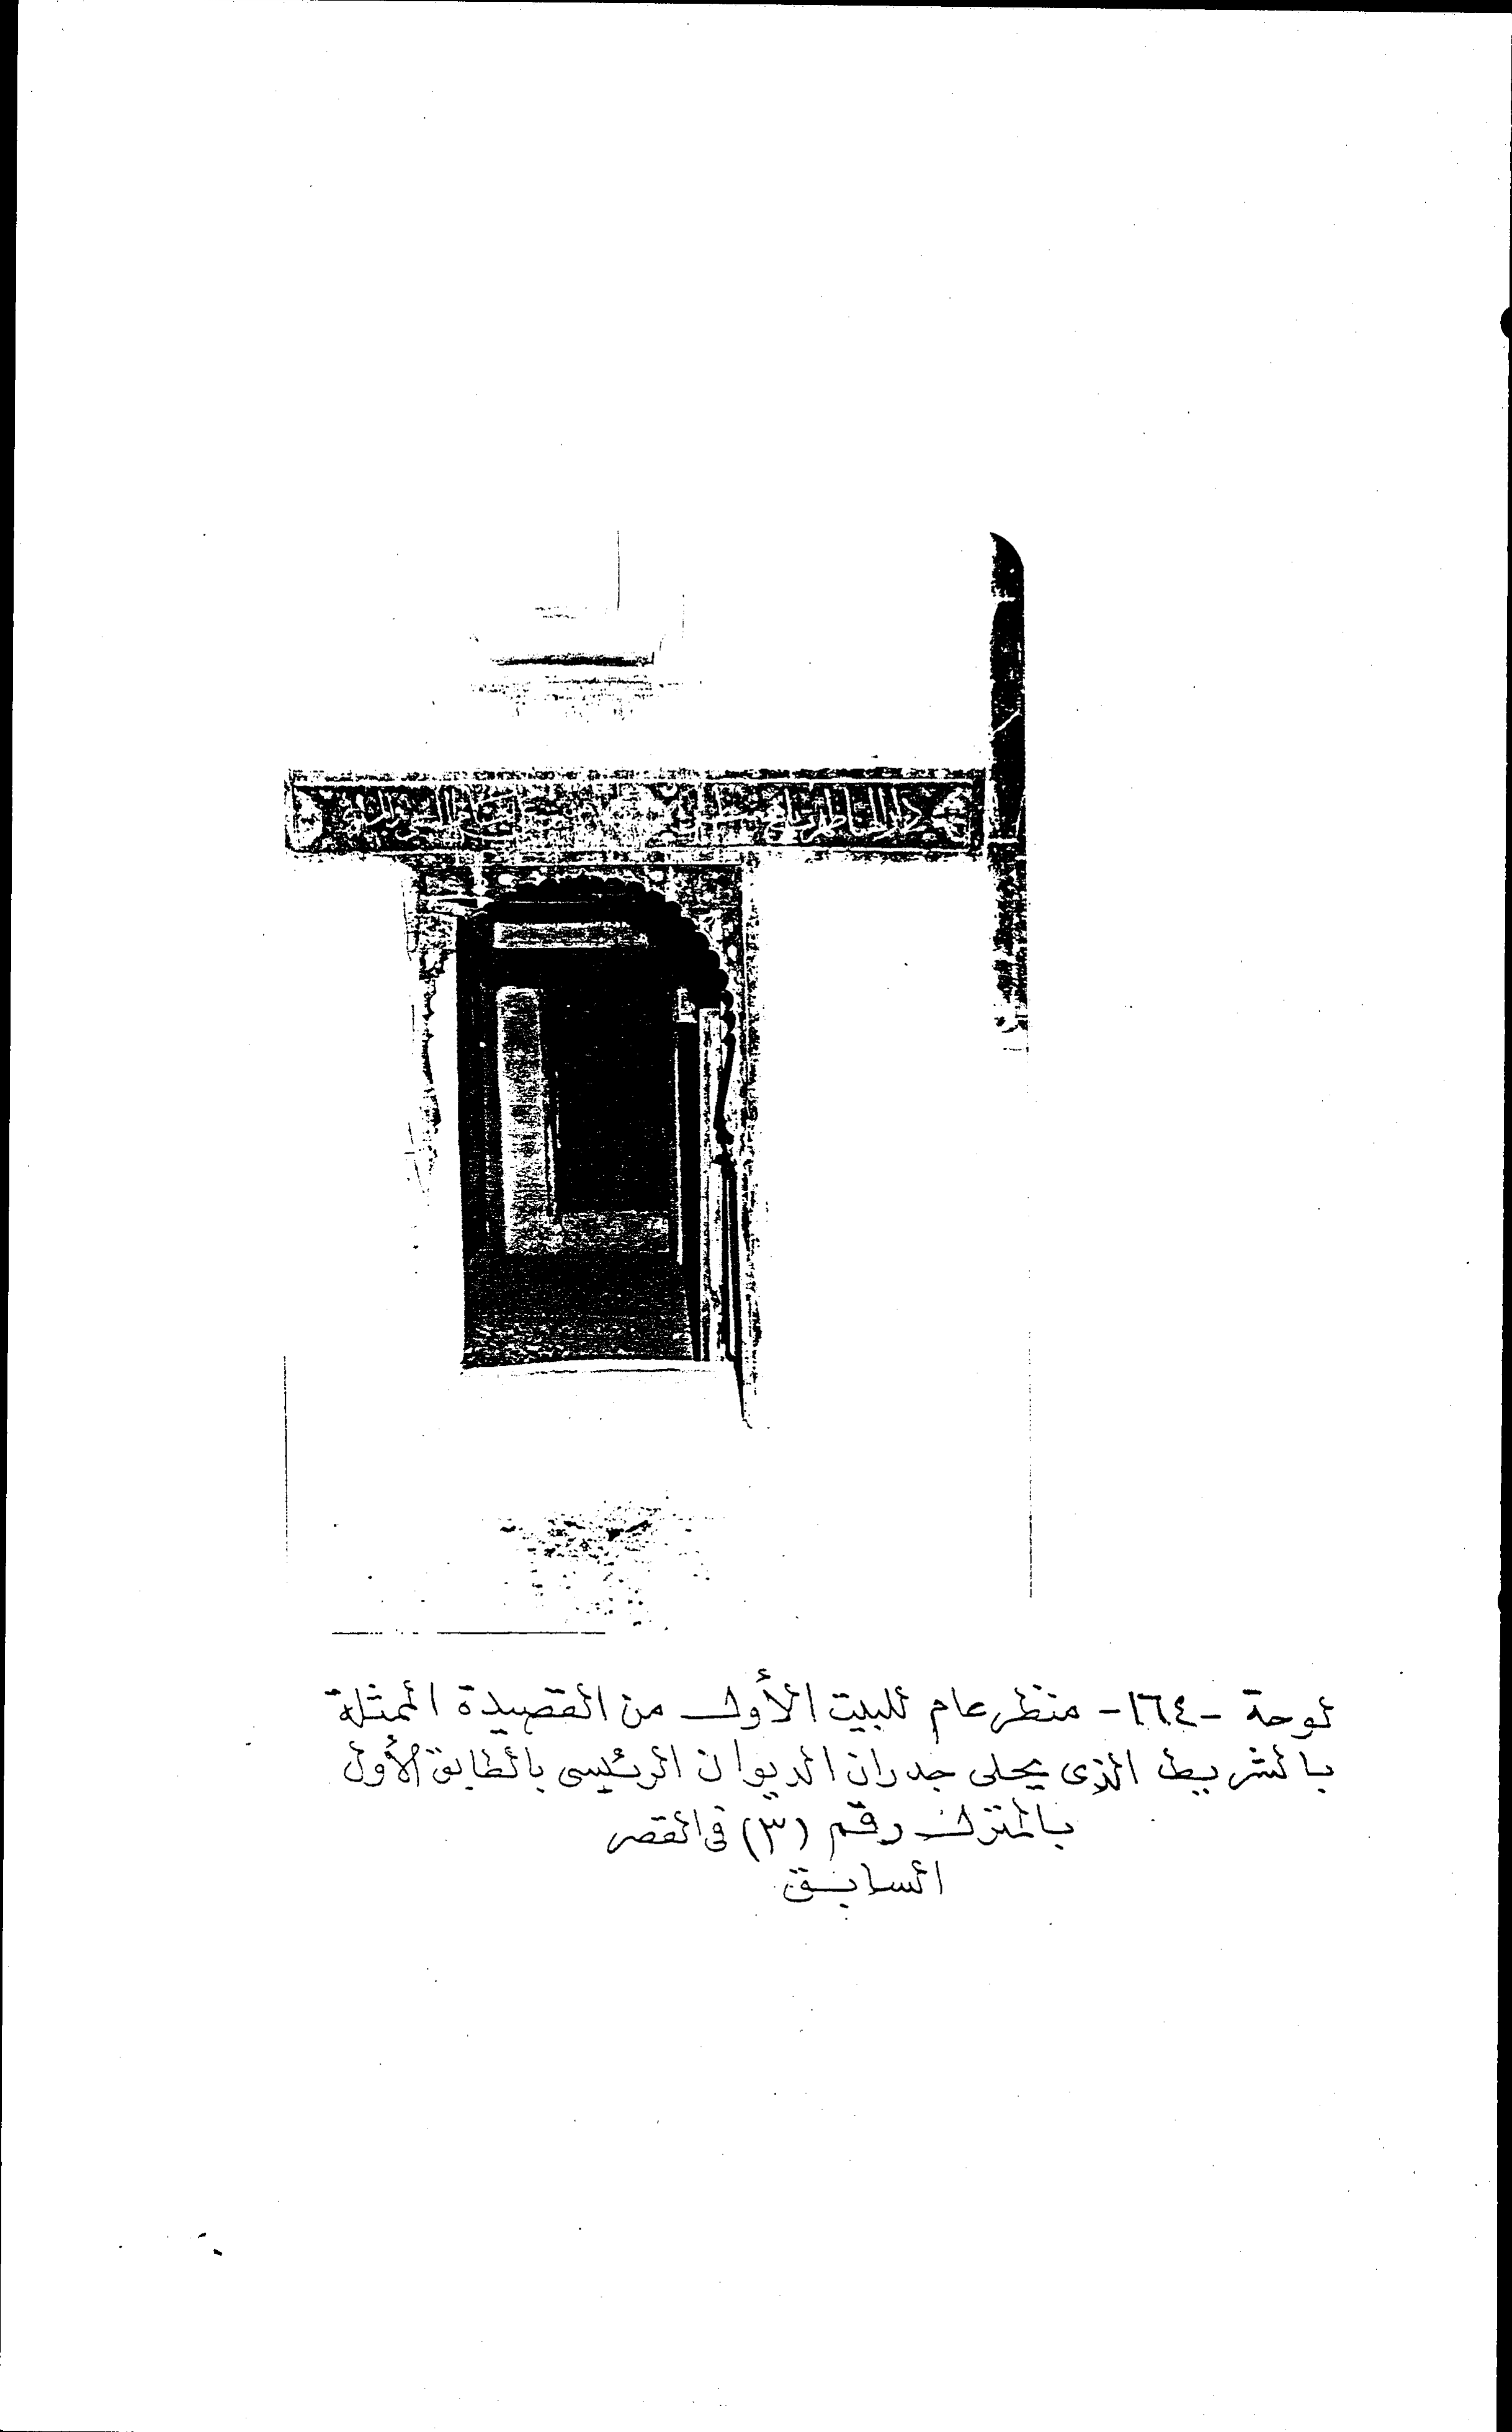 لوحة -١٦٤- منظر عام للبيت الأول من القصيدة الممثلة
بالشريط الذى يحلى جدران الديوان الرئيسى بالطابق الأول
بالمنزل رقم (٣) فى القصر
السابق